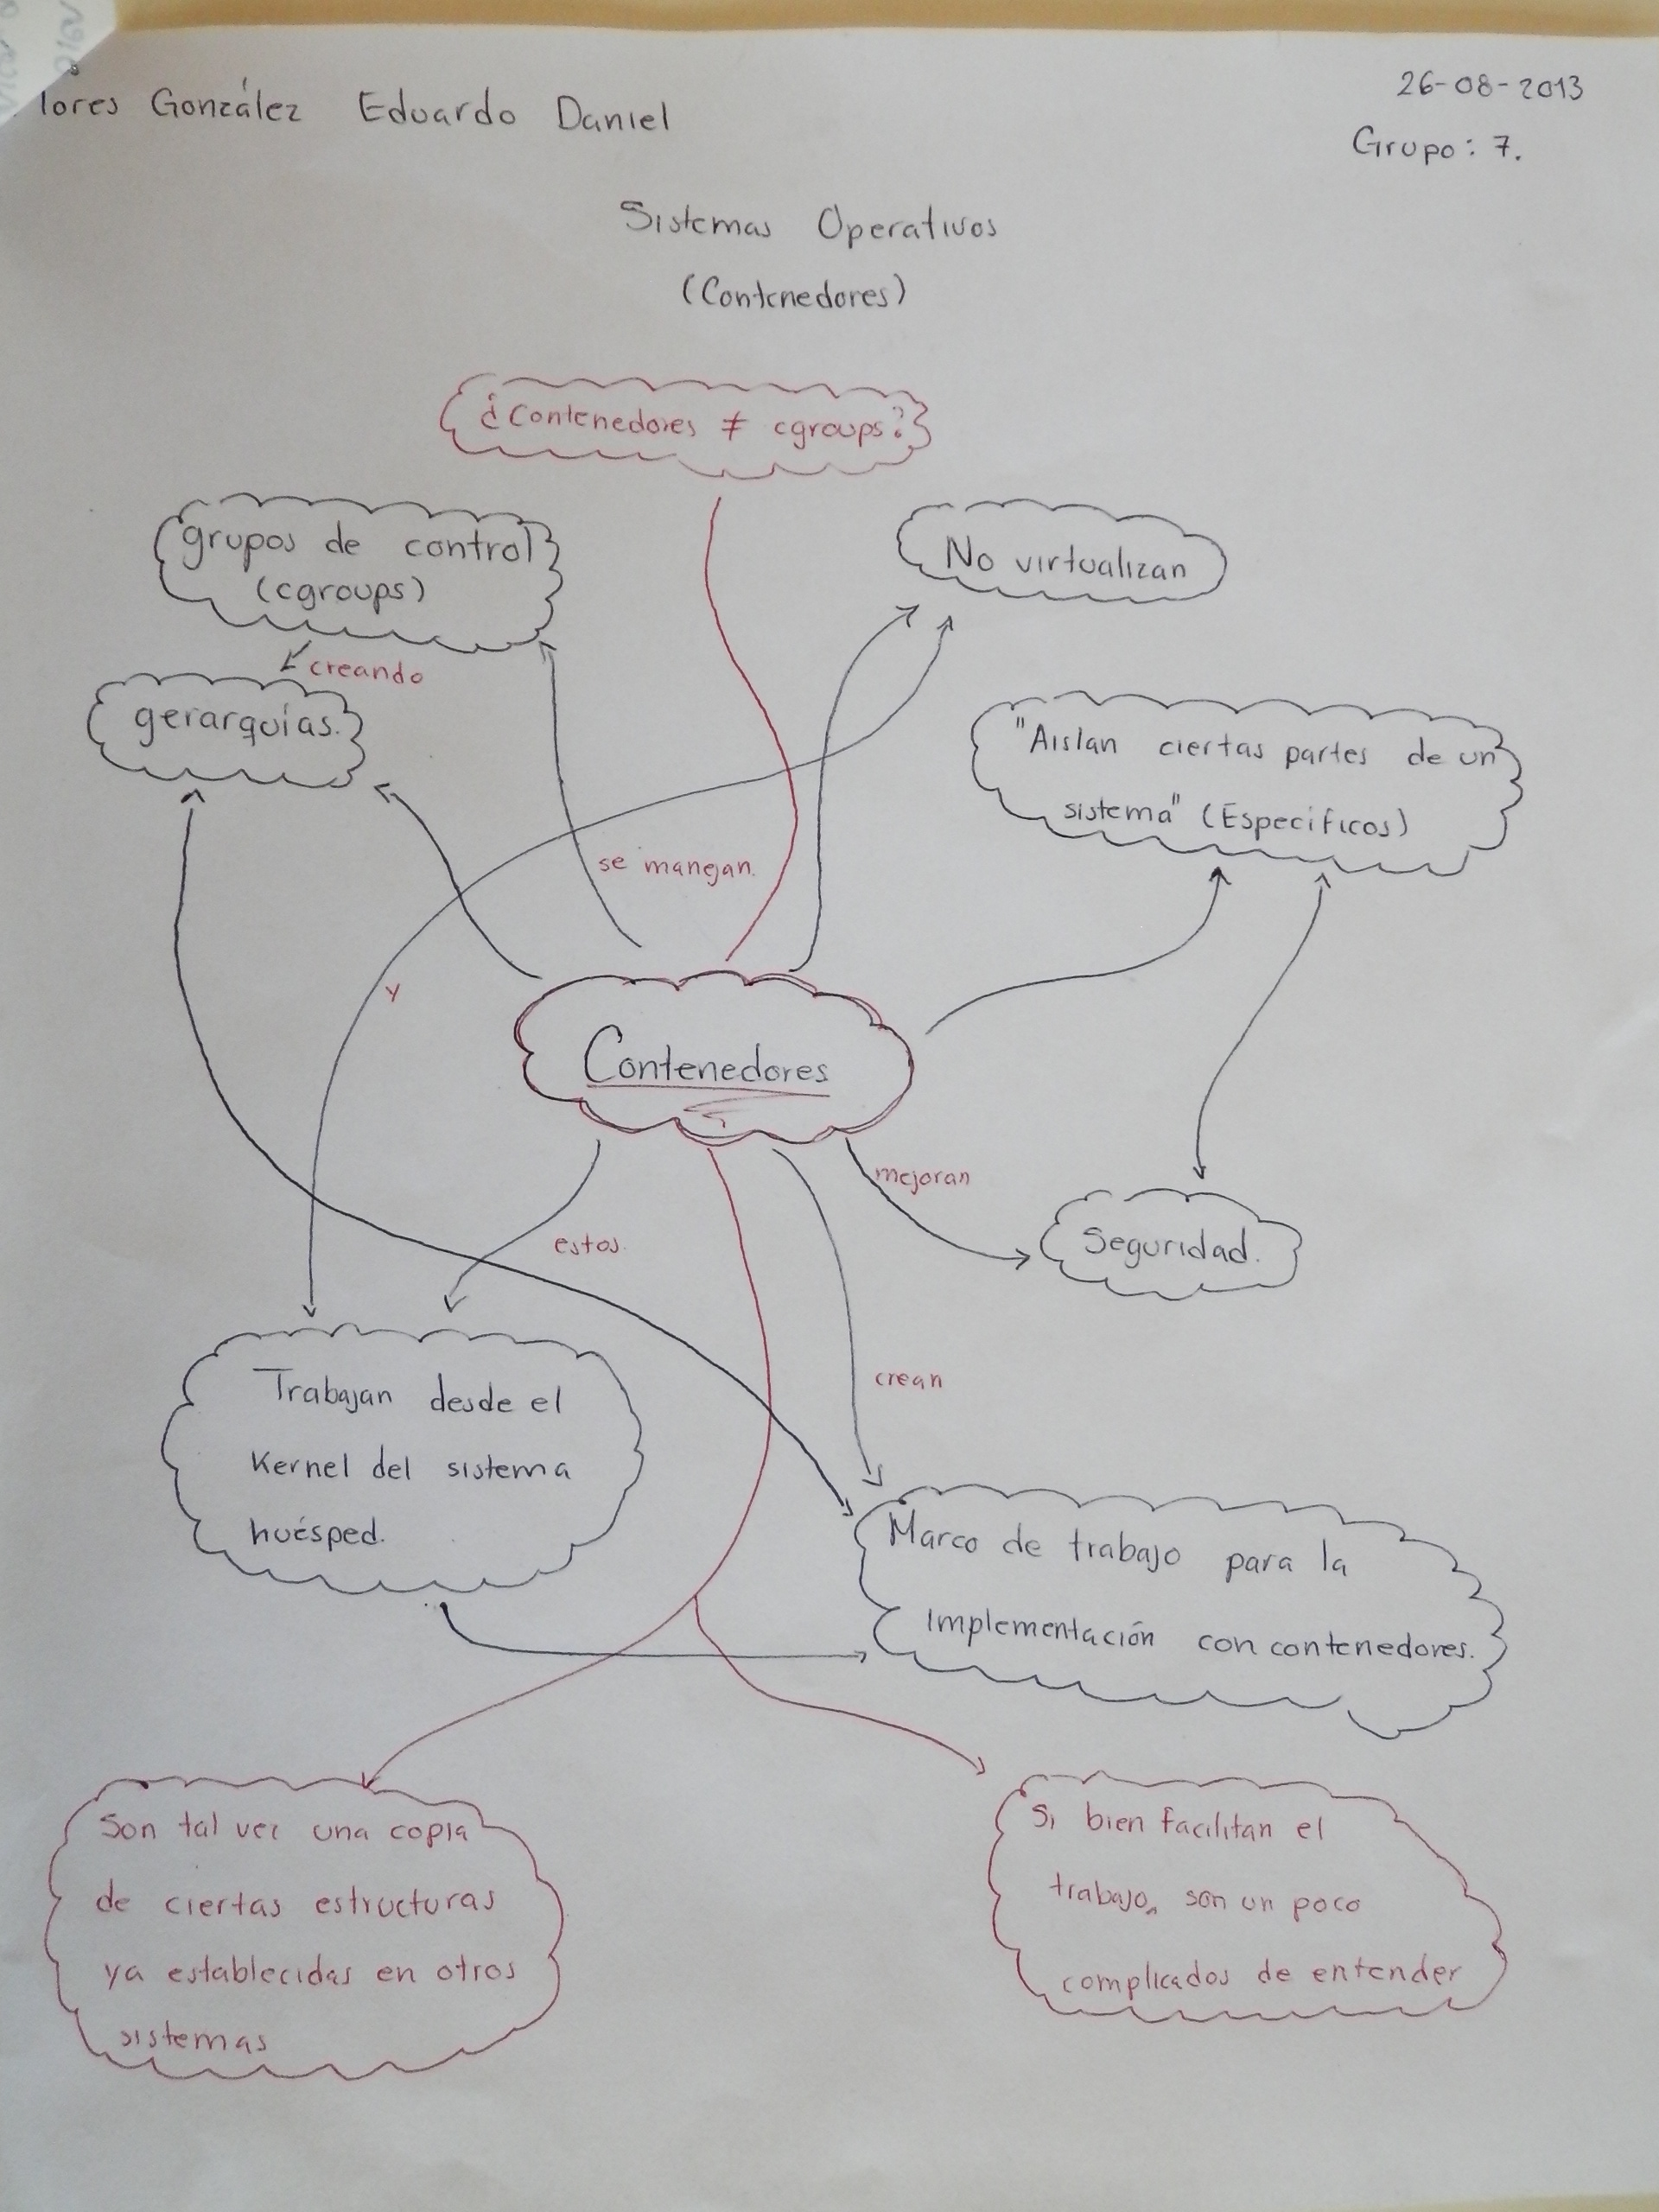 lores González Eduardo Daniel
26-08-2013
Grupo: 7.
Sistemas Operativos
(Contenedores)
¿Contenedores ≠ cgroups?
grupos de control
(cgroups)
No virtualizan
creando
gerarquías.
"Aislan ciertas partes de un
sistema" (Especificos)
se manejan.
y
Contenedores
mejoran
estos.
Seguridad.
crean
Trabajan desde el
Kernel del sistema
huésped.
Marco de trabajo para la
implementación con contenedores.
Son tal vez una copia
de ciertas estructuras
ya establecidas en otros
sistemas
Si bien facilitan el
trabajo, son un poco
complicados de entender